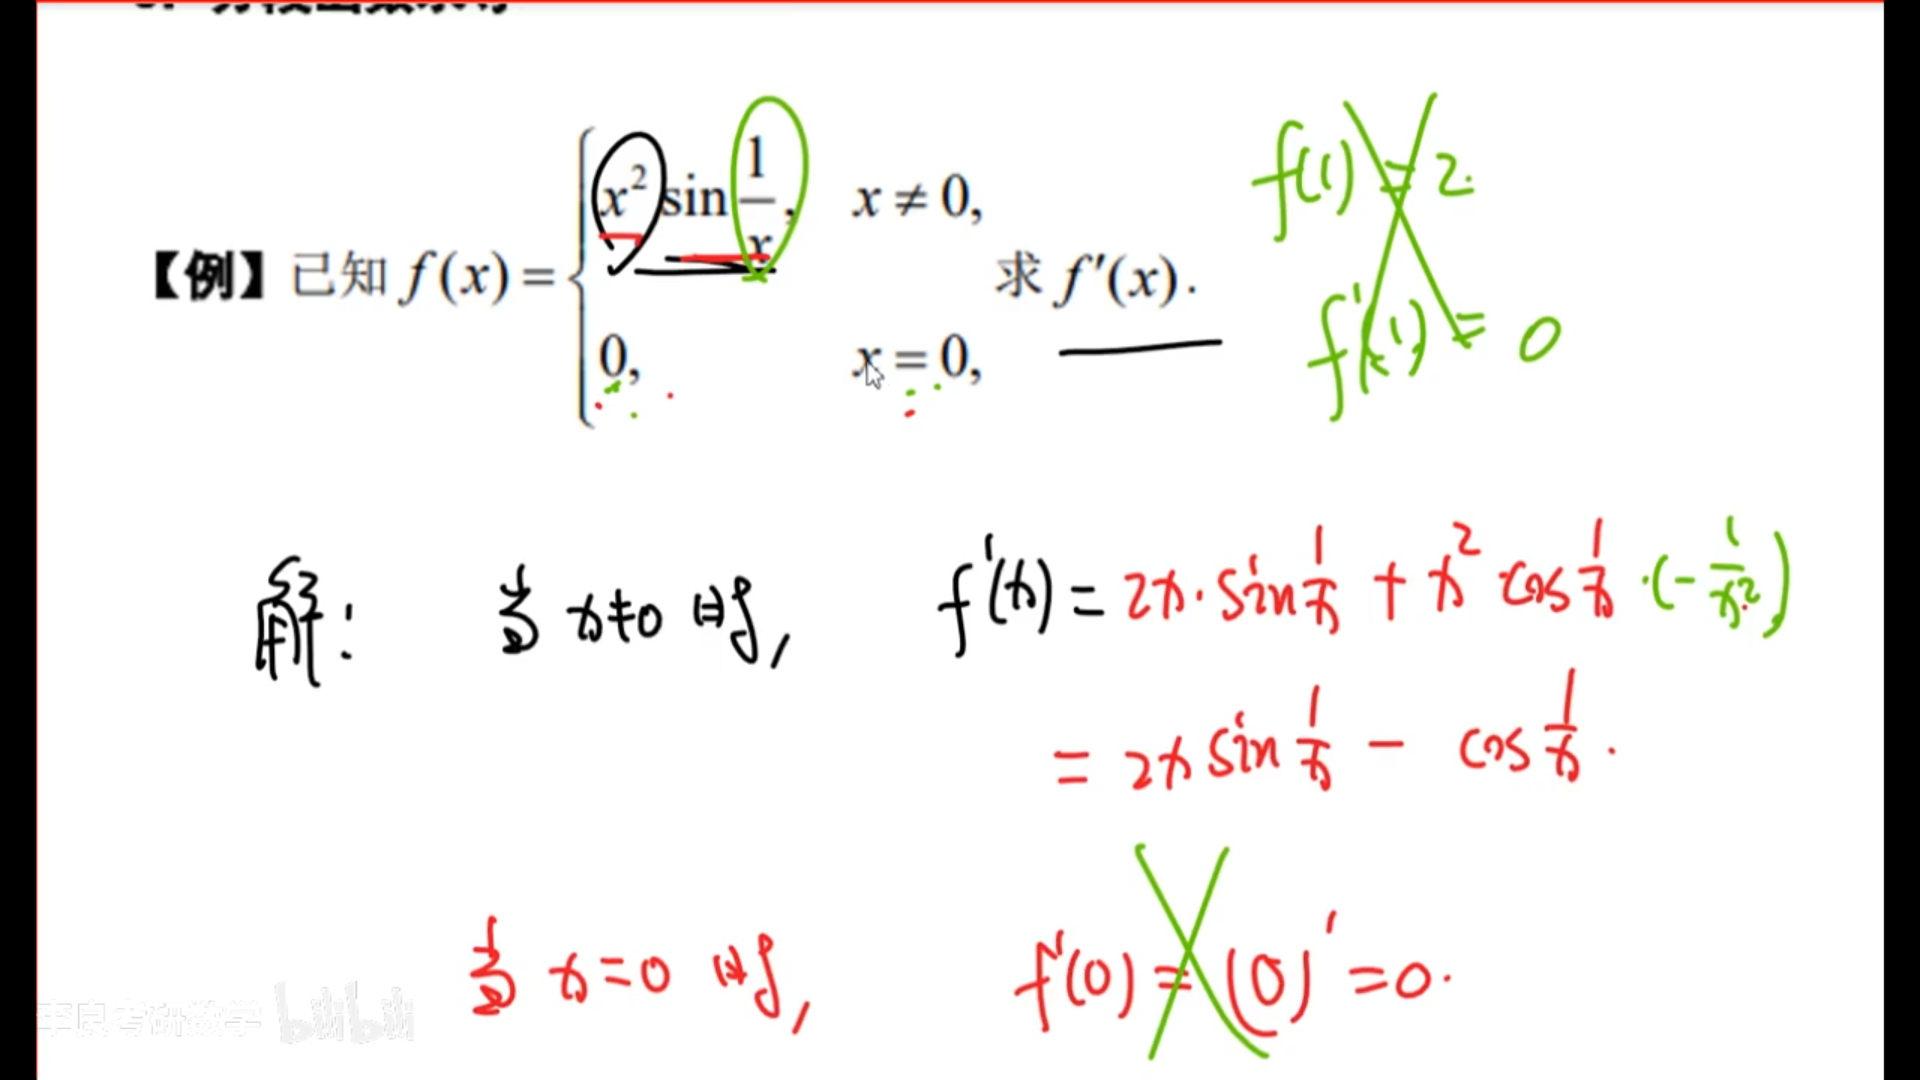 3. 分段函数求导
【例】已知 f(x) = { x² sin 1/x, x ≠ 0,
0, x = 0, 求 f′(x).
f(1) = 2.
f′(1) = 0
解: 当 x≠0 时, f′(x) = 2x·sin 1/x + x² cos 1/x ·(- 1/x²)
= 2x sin 1/x - cos 1/x .
当 x=0 时, f′(0) = (0)′ = 0.
李良考研数学 bilibili